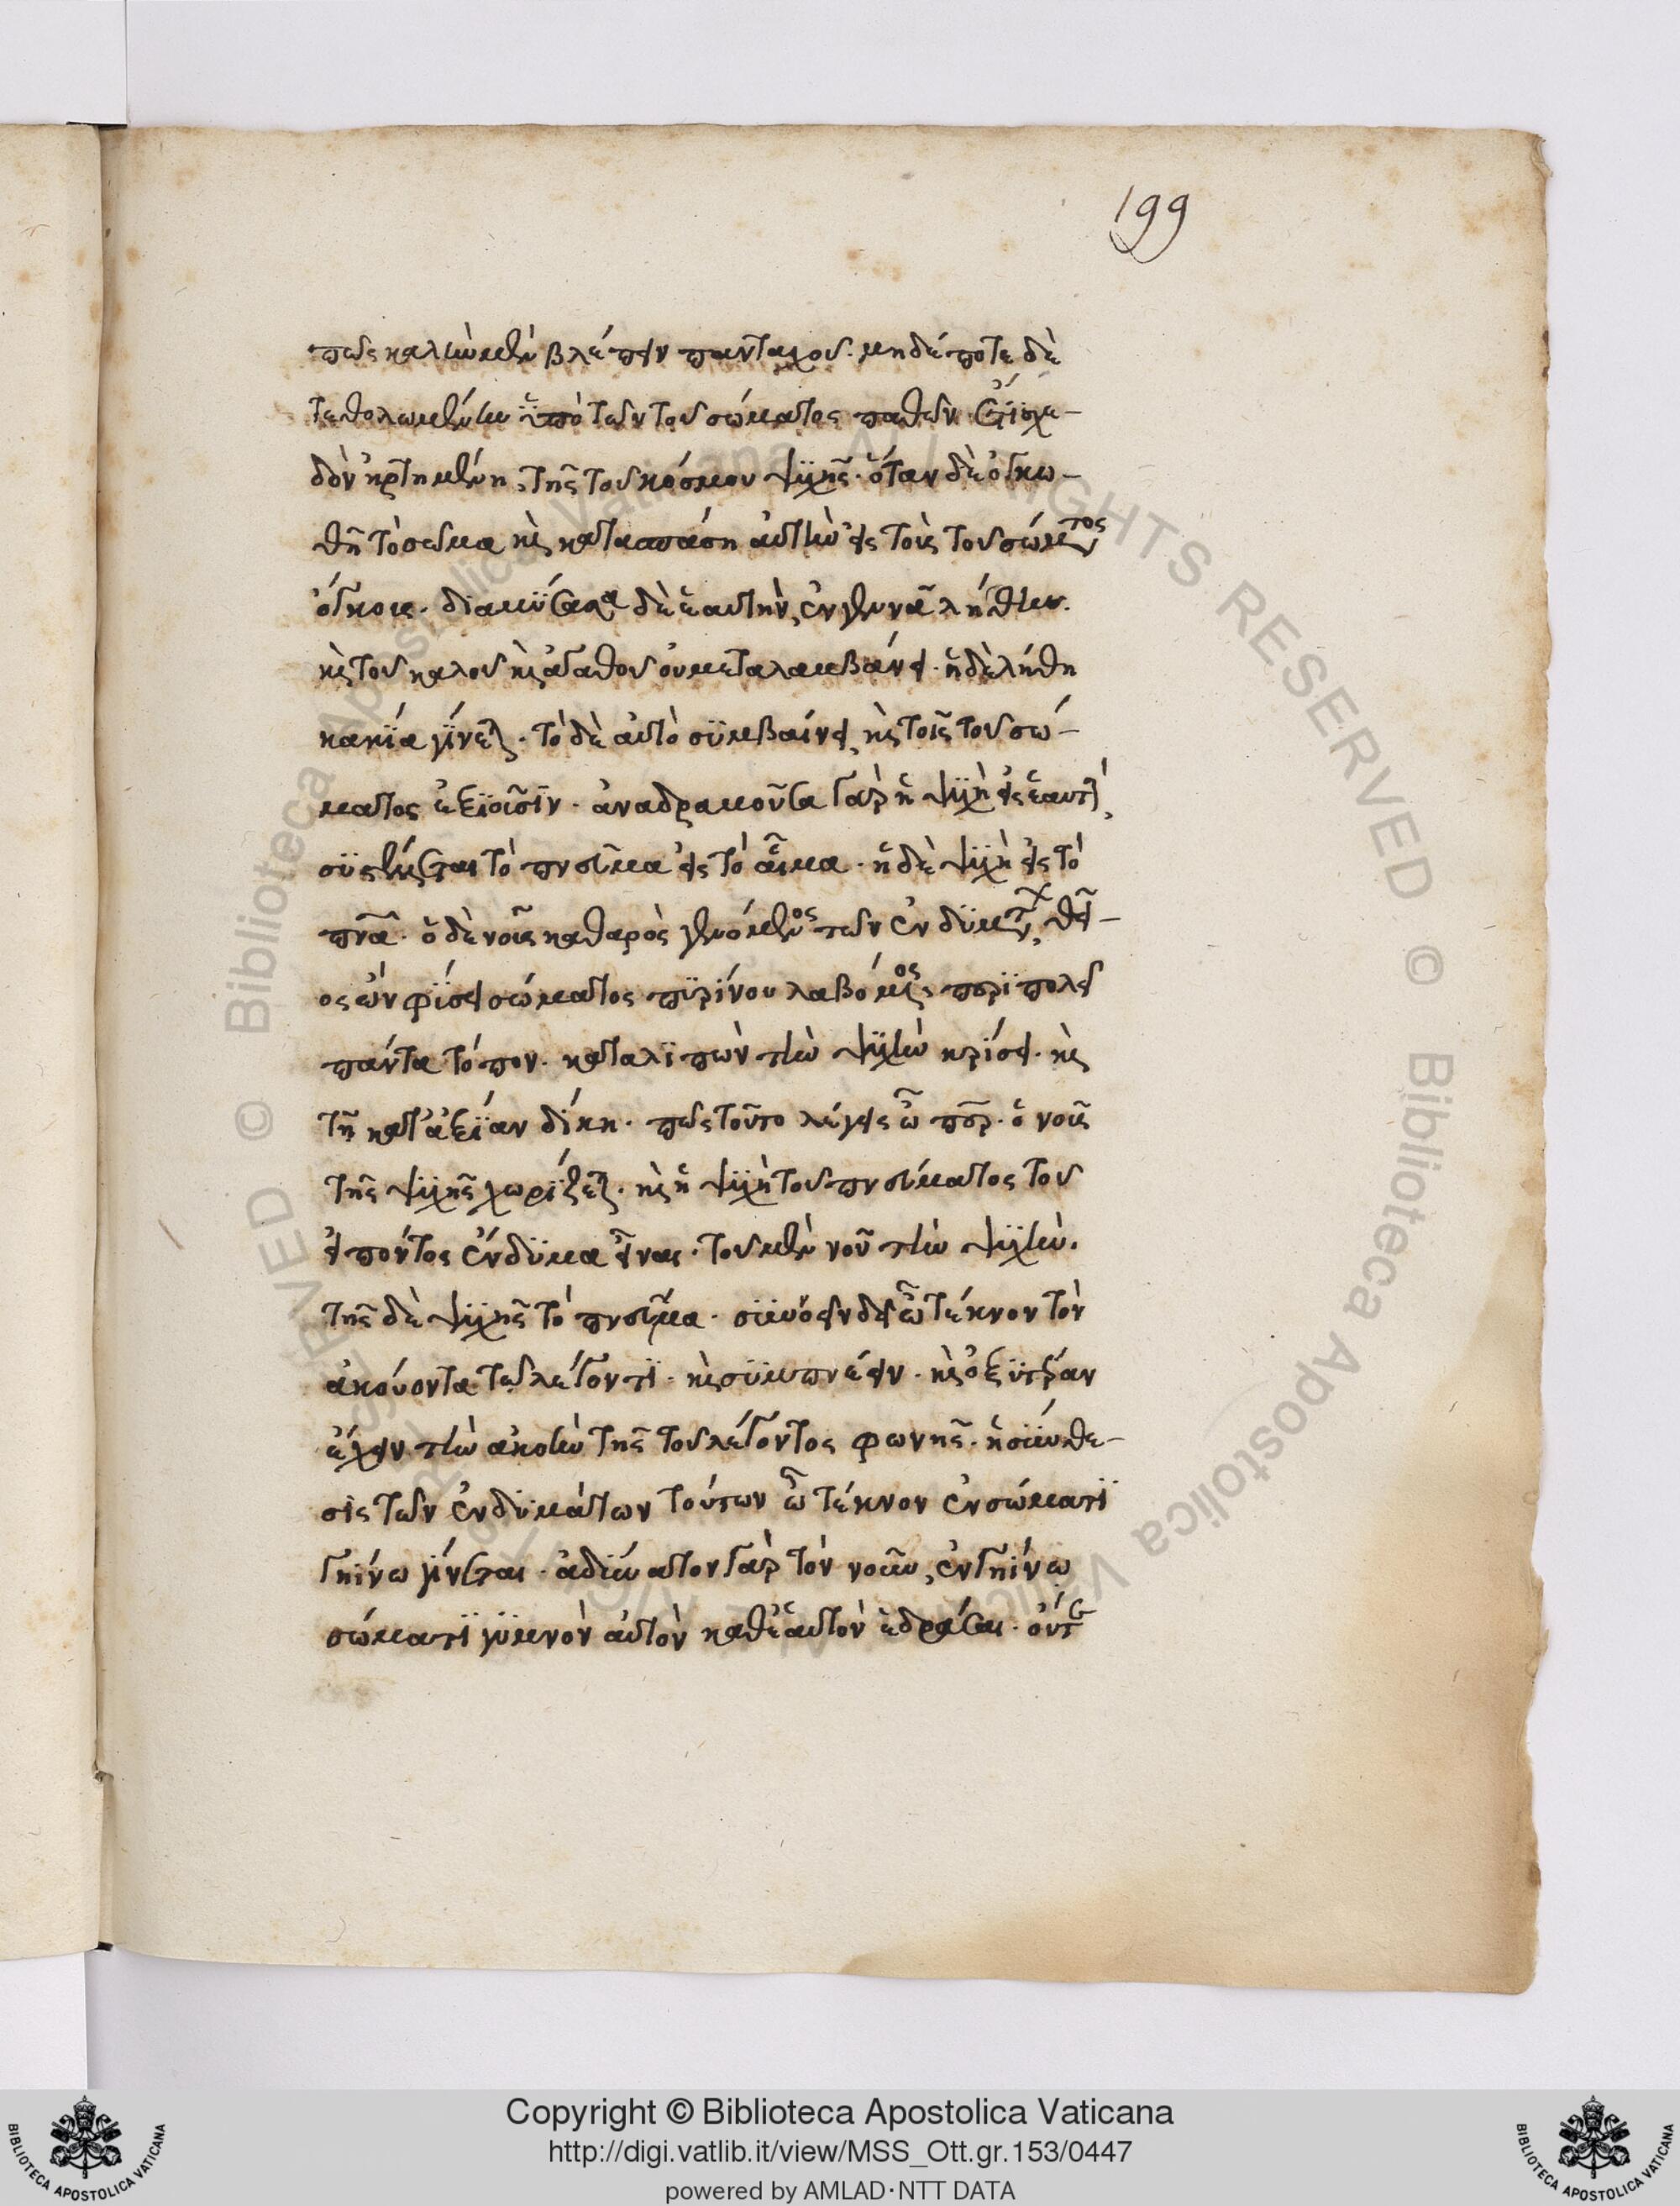 199
πῶς καλὴν μὲν βλέπειν πανταχοῦ. μηδέποτε δὲ
τεθολωμένην ὑπὸ τῶν τοῦ σώματος παθῶν. ἔτι σχε-
δὸν ἠρτημένη τῆς τοῦ κόσμου ψυχῆς. ὅταν δὲ ὀγκω-
θῆ τὸ σῶμα καὶ κατασπάση αὐτὴν εἰς τοὺς τοῦ σώματος
ὄγκους. διαλύσασα δὲ ἑαυτὴν ἐγγεννᾶ λήθην.
καὶ τοῦ καλοῦ καὶ ἀγαθοῦ οὐ μεταλαμβάνει. ἡ δὲ λήθη
κακία γίνεται. τὸ δὲ αὐτὸ συμβαίνει καὶ τοῖς τοῦ σώ-
ματος ἐξιοῦσιν. ἀναδραμοῦσα γὰρ ἡ ψυχὴ εἰς ἑαυτὴν
συστέλλεται τὸ πνεῦμα εἰς τὸ αἷμα. ἡ δὲ ψυχὴ εἰς τὸ
πνᾶ. ὁ δὲ νοῦς καθαρὸς γενόμενος τῶν ἐνδυμάτων θεῖ-
ος ὢν φύσει σώματος πυρίνου λαβόμενος περιπολεῖ
πάντα τόπον. καταλιπὼν τὴν ψυχὴν κρίσει. καὶ
τῆ κατ' ἀξίαν δίκη. πῶς τοῦτο λέγεις ὦ περ. ὁ νοῦς
τῆς ψυχῆς χωρίζεται. καὶ ἡ ψυχὴ τοῦ πνεύματος τοῦ
εἰπόντος ἔνδυμα εἶναι. τοῦ μὲν νοῦ τὴν ψυχὴν.
τῆς δὲ ψυχῆς τὸ πνεῦμα. συννοεῖν δεῖ ὦ τέκνον τὸν
ἀκούοντα τῶ λέγοντι. καὶ συμπνέειν. καὶ ὀξυτέραν
ἔχειν τὴν ἀκοὴν τῆς τοῦ λέγοντος φωνῆς. ἡ σύνθε-
σις τῶν ἐνδυμάτων τούτων ὦ τέκνον ἐν σώματι
γηίνω γίνεται. ἀδύνατον γὰρ τὸν νοῦν ἐν γηίνω
σώματι γυμνὸν αὐτὸν καθ' ἑαυτὸν ἑδράσαι. οὔτε
Copyright © Biblioteca Apostolica Vaticana
http://digi.vatlib.it/view/MSS_Ott.gr.153/0447
powered by AMLAD·NTT DATA